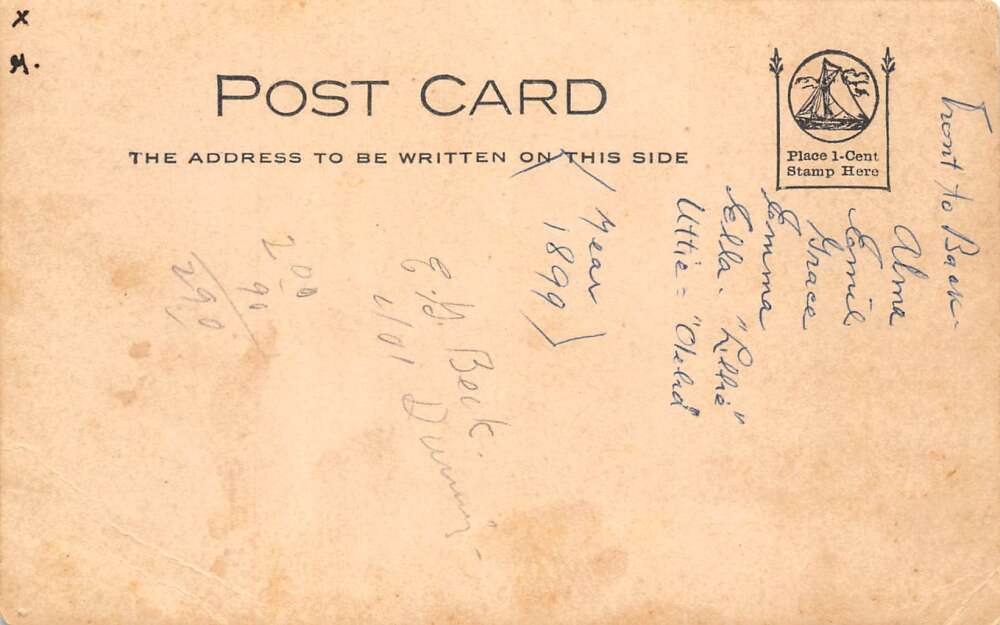 x
M.
POST CARD
THE ADDRESS TO BE WRITTEN ON THIS SIDE
Place 1-Cent
Stamp Here
Front to Back-
Alma
Emil
Grace
Emma
Ella. "Lillie"
Uttie = "Otelia"
(year
1899)
E. G. Beck.
2.00
90
290